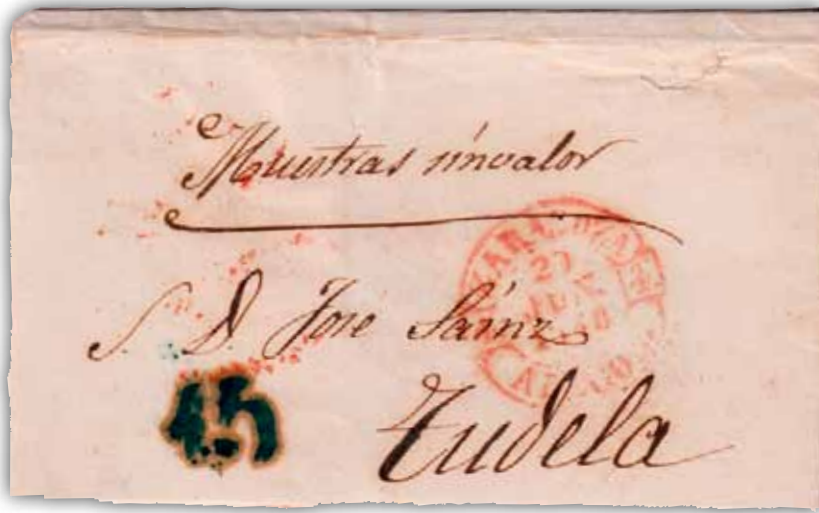 Muestras sinvalor
S. D. José Sáinz
15
Tudela